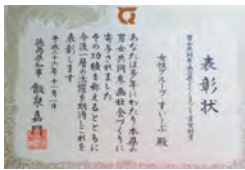 表彰状
女性グループ すいーぷ 殿
あなたは多年にわたり本県の
男女共同参画社会づくりに
寄与されました
その功績を称えるとともに
今後一層の活躍を期待しこれを
表彰します
平成二十六年十一月一日
徳島県知事 飯泉嘉門